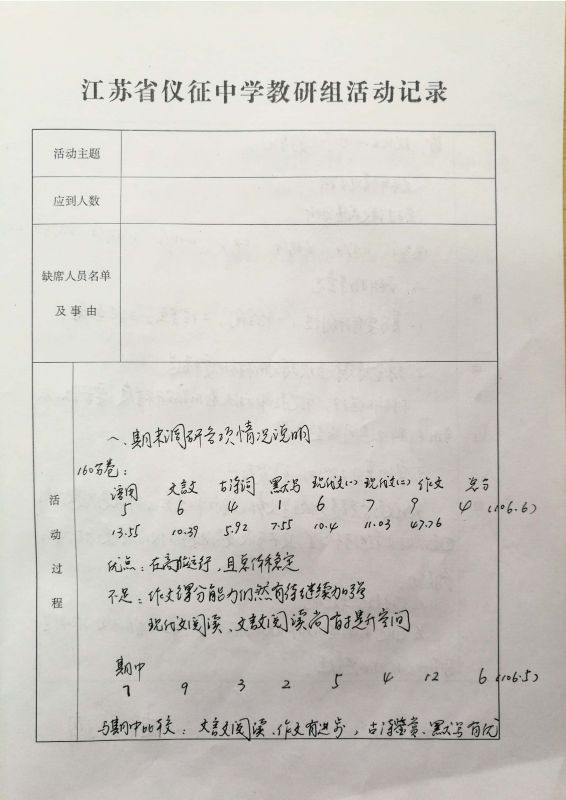 江苏省仪征中学教研组活动记录
活动主题
应到人数
缺席人员名单
及事由
活动过程
一、期末调研各项情况说明
160分卷：
语用 文言文 古诗词 默写 现代文(一) 现代文(二) 作文 总分
5 6 4 1 6 7 9 4 (106.6)
13.55 10.39 5.92 7.55 10.4 11.03 47.76
优点：在高位运行，且总体稳定
不足：作文得分能力仍然有待继续加强
现代文阅读、文言文阅读尚有提升空间
期中
7 9 3 2 5 4 12 6 (106.5)
与期中比较：文言文阅读、作文有进步，古诗鉴赏、默写有优